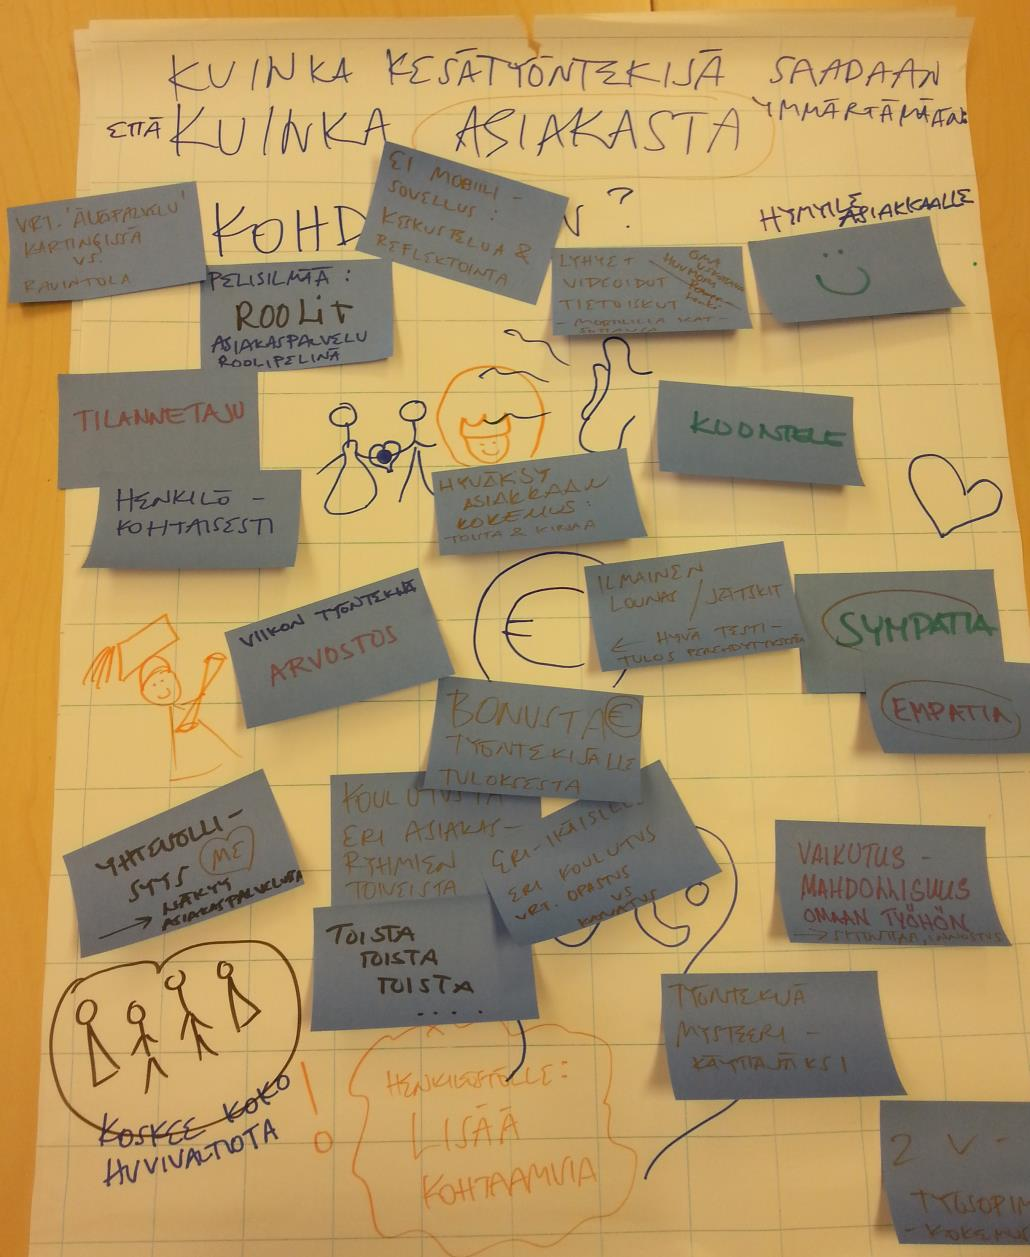 KUINKA KESÄTYÖNTEKIJÄ SAADAAN
YMMÄRTÄMÄÄN:
ETTÄ KUINKA ASIAKASTA
KOHD N?
VRT. 'ÄLYPALVELU'
KARTINGISSA
VS.
RAVINTOLA
EI MOBIILI-
SOVELLUS:
KESKUSTELUA &
REFLEKTOINTA
HYMYILE
ASIAKKAALLE
PELISILMÄÄ:
ROOLIT
ASIAKASPALVELU
ROOLIPELINÄ
LYHYET
VIDEOIDUT
TIETOISKUT
OMA
TILANNETAJU
KUUNTELE
HENKILÖ-
KOHTAISESTI
HYVÄKSY
ASIAKKAAN
KOKEMUS:
TOISTA & KIRJAA
VIIKON TYÖNTEKIJÄ
ARVOSTUS
€
ILMAINEN
LOUNAS / JÄTSKIT
← HYVÄ TESTI-
TULOS PEREHDYTYKSESTÄ
SYMPATIA
EMPATIA
BONUSTA €
TYÖNTEKIJÄLLE
TULOKSESTA
YHTENÄLLI-
SYYS ME
→ NÄKYY
ASIAKASPALVELUSTA
KOULUTUSTA
ERI ASIAKAS-
RYHMIEN
TOIVEISTA
ERI-IKÄISILLE
ERI KOULUTUS
VRT. OPASTUS
VS
VAIKUTUS-
MAHDOLLISUUS
OMAAN TYÖHÖN
TOISTA
TOISTA
TOISTA
....
TYÖNTEKIJÄ
MYSTEERI-
KÄYTTÄJÄKSI
KOSKEE KOKO
HUVIVALTIOTA
!
HENKILÖSTÖLLE:
LISÄÄ
KOHTAAMISIA
2 V-
TYÖSOPIM
- KOKEMU